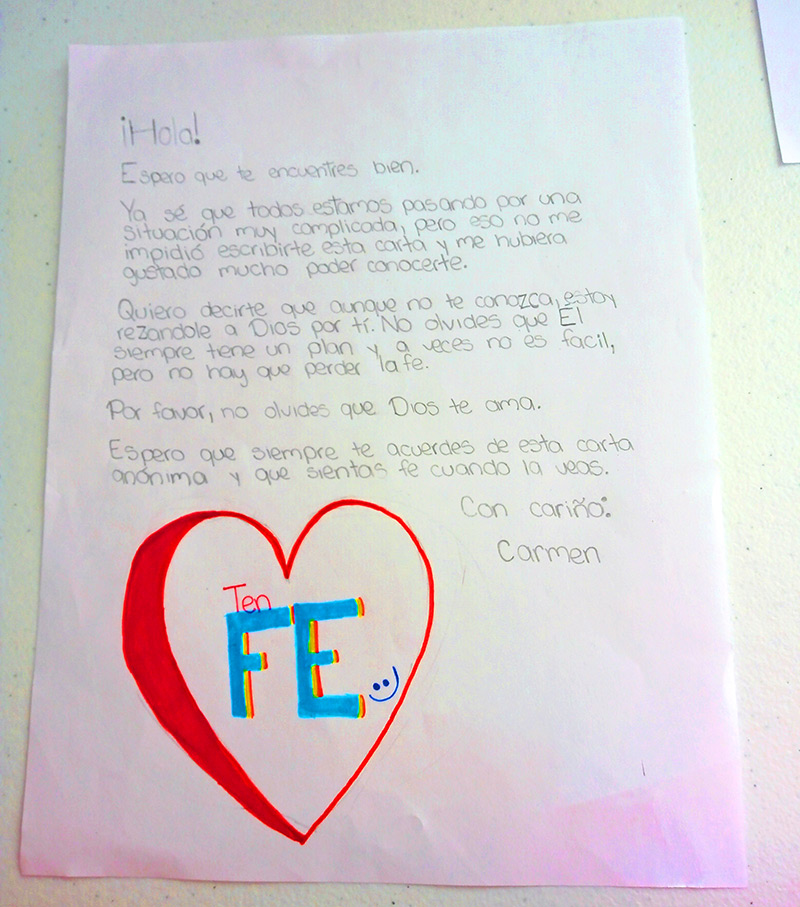 ¡Hola!
Espero que te encuentres bien.
Ya sé que todos estamos pasando por una
situación muy complicada, pero eso no me
impidió escribirte esta carta y me hubiera
gustado mucho poder conocerte.
Quiero decirte que aunque no te conozca, estoy
rezandole a Dios por tí. No olvides que Él
siempre tiene un plan y a veces no es facil,
pero no hay que perder la fe.
Por favor, no olvides que Dios te ama.
Espero que siempre te acuerdes de esta carta
anónima y que sientas fe cuando la veas.
Con cariño:
Carmen
Ten
FE